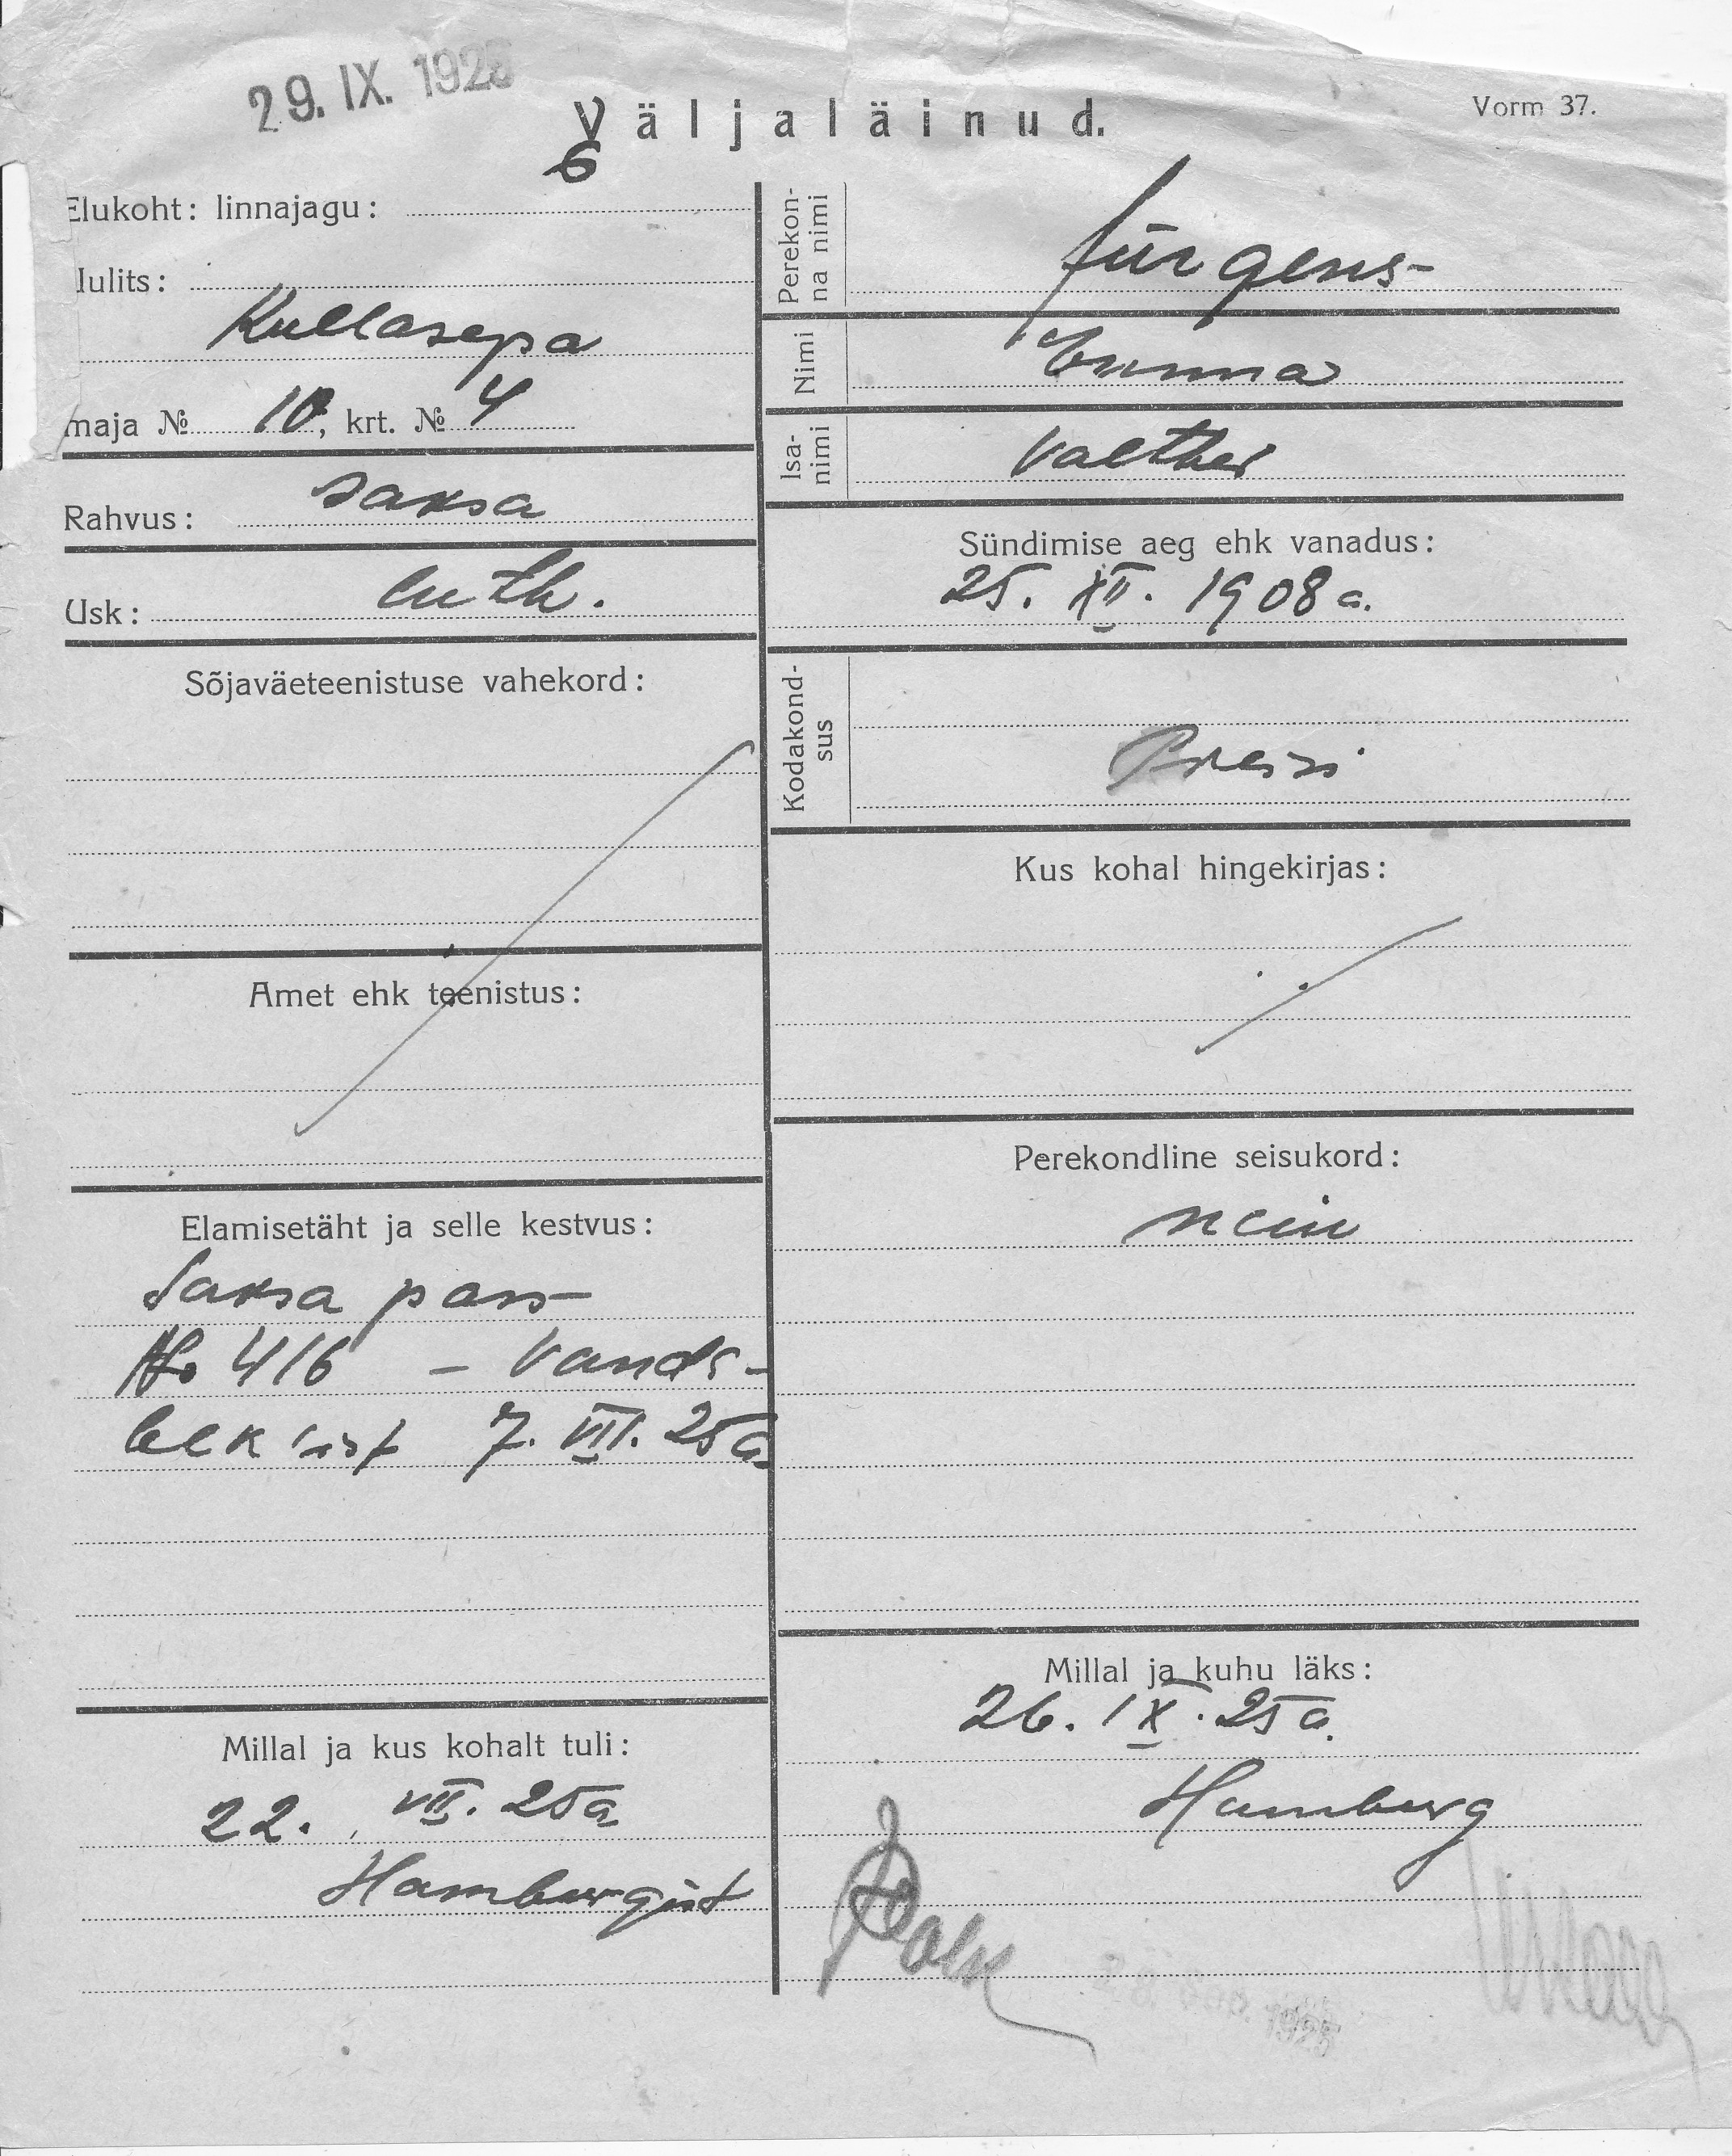 29. IX. 1925
Väljaläinud.
Vorm 37.
6
Elukoht: linnajagu:
Uulits:
Kullasepa
maja № 10, krt. № 4
Rahvus: saksa
Usk: luth.
Sõjaväeteenistuse vahekord:
Amet ehk teenistus:
Elamisetäht ja selle kestvus:
Saksa pass
№ 416 – Vands-
bek'ist 7. VII. 25 a
Millal ja kus kohalt tuli:
22. VII. 25 a
Hamburgist
Perekon-
na nimi
Jürgens
Nimi
Emma
Isa-
nimi
Valther
Sündimise aeg ehk vanadus:
25. XII. 1908 a.
Kodakond-
sus
Preisi
Kus kohal hingekirjas:
Perekondline seisukord:
neiu
Millal ja kuhu läks:
26. IX. 25 a.
Hamburg
1925